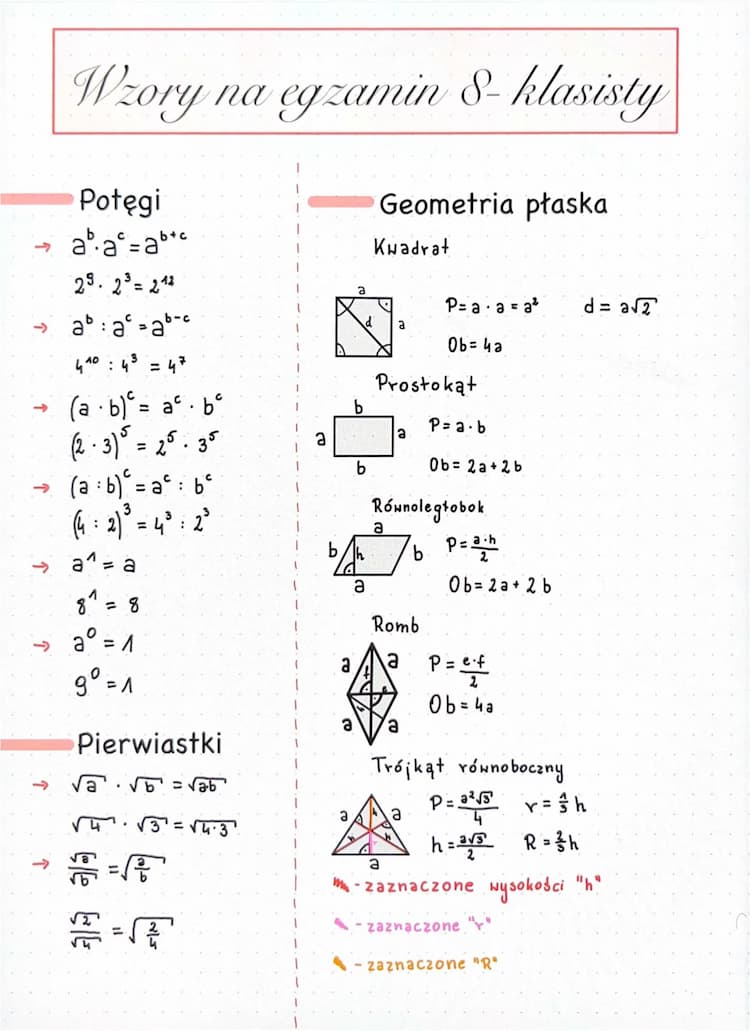 Wzory na egzamin 8-klasisty
Potęgi
→ a^b · a^c = a^{b+c}
2^9 · 2^3 = 2^{12}
→ a^b : a^c = a^{b-c}
4^{10} : 4^3 = 4^7
→ (a · b)^c = a^c · b^c
(2 · 3)^5 = 2^5 · 3^5
→ (a : b)^c = a^c : b^c
(4 : 2)^3 = 4^3 : 2^3
→ a^1 = a
8^1 = 8
→ a^0 = 1
9^0 = 1
Pierwiastki
→ √a · √b = √(a·b)
√4 · √3 = √(4·3)
→ √a/√b = √(a/b)
√2/√4 = √(2/4)
Geometria płaska
Kwadrat
a
d a
P = a · a = a² d = a√2
Ob = 4a
Prostokąt
b
a a
b
P = a · b
Ob = 2a + 2b
Równoległobok
a
b h b
a
P = a·h/2
Ob = 2a + 2b
Romb
a a
f e
a a
P = e·f/2
Ob = 4a
Trójkąt równoboczny
a h a
a
P = a²√3/4 r = 1/3 h
h = a√3/2 R = 2/3 h
- zaznaczone wysokości "h"
- zaznaczone "r"
- zaznaczone "R"